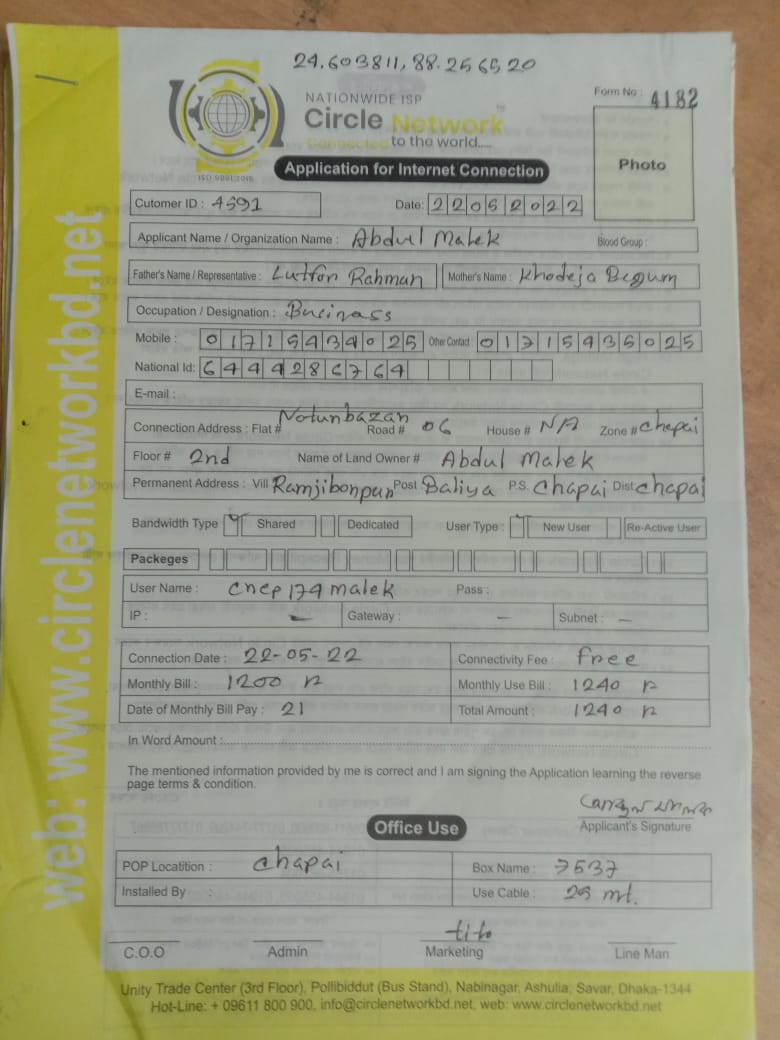 24.603811, 88.256520
NATIONWIDE ISP
Circle Network™
Connected to the world.....
ISO 9001:2015
Form No : 4182
Photo
Application for Internet Connection
Cutomer ID : 4591 Date: 22052022
Applicant Name / Organization Name : Abdul Malek Blood Group :
Father's Name / Representative : Lutfor Rahman Mother's Name : Khodeja Begum
Occupation / Designation : Businass
Mobile : 01715434025 Other Contact 01715435025
National Id: 6444286764
E-mail :
Connection Address : Flat # Notunbazar Road # 06 House # N/A Zone # chapai
Floor # 2nd Name of Land Owner # Abdul Malek
Permanent Address : Vill Ramjibonpur Post Baliya P.S. Chapai Dist chapai
Bandwidth Type Shared Dedicated User Type : New User Re-Active User
Packeges
User Name : cncp174malek Pass :
IP : — Gateway : — Subnet : —
Connection Date : 22-05-22 Connectivity Fee : free
Monthly Bill : 1200 Monthly Use Bill : 1240
Date of Monthly Bill Pay : 21 Total Amount : 1240
In Word Amount :
The mentioned information provided by me is correct and I am signing the Application learning the reverse
page terms & condition.
Applicant's Signature
Office Use
POP Locatition : chapai Box Name : 7537
Installed By : Use Cable : mt.
tito
C.O.O Admin Marketing Line Man
Unity Trade Center (3rd Floor), Pollibiddut (Bus Stand), Nabinagar, Ashulia, Savar, Dhaka-1344
Hot-Line: + 09611 800 900, info@circlenetworkbd.net, web: www.circlenetworkbd.net
web: www.circlenetworkbd.net